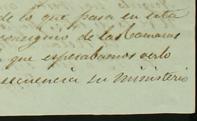 de lo que pasa en esta
consiguio de las Camaras
que esperabamos verlo
secuencia su ministerio